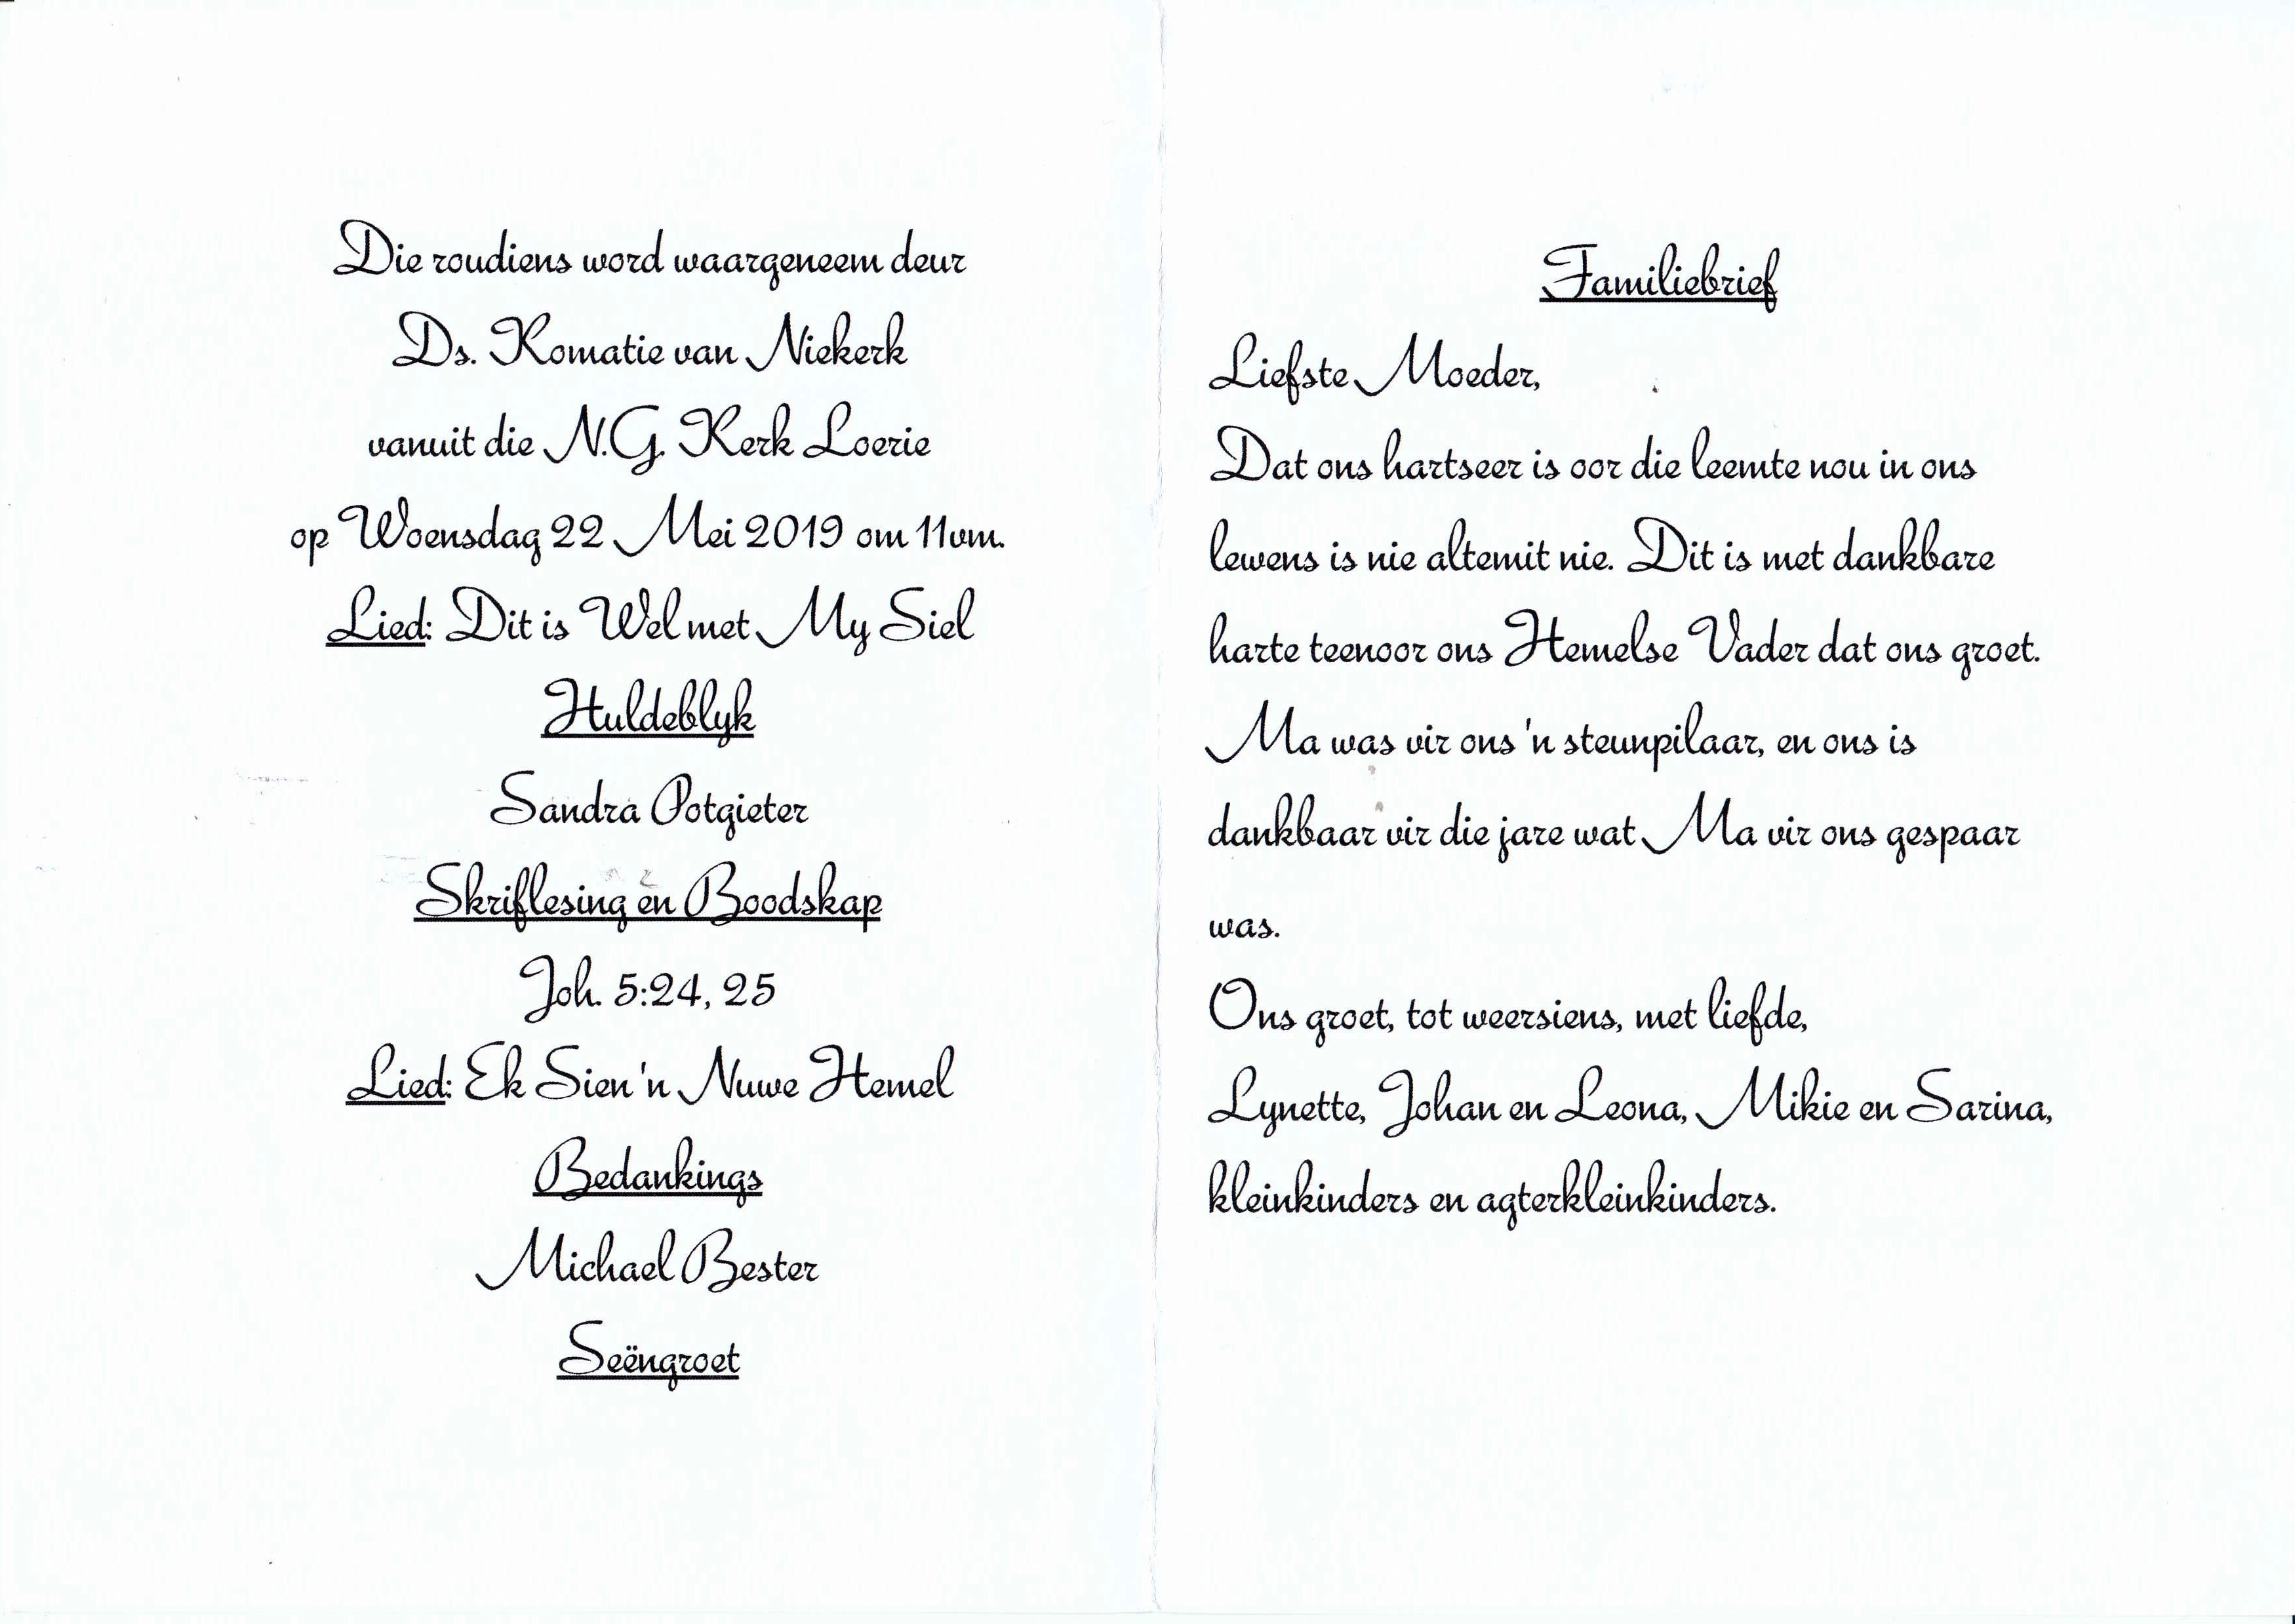 Die roudiens word waargeneem deur
Ds. Komatie van Niekerk
vanuit die N.G. Kerk Loerie
op Woensdag 22 Mei 2019 om 11vm.
Lied: Dit is Wel met My Siel
Huldeblyk
Sandra Potgieter
Skriflesing en Boodskap
Joh. 5:24, 25
Lied: Ek Sien 'n Nuwe Hemel
Bedankings
Michael Bester
Seëngroet
Familiebrief
Liefste Moeder,
Dat ons hartseer is oor die leemte nou in ons
lewens is nie altemit nie. Dit is met dankbare
harte teenoor ons Hemelse Vader dat ons groet.
Ma was vir ons 'n steunpilaar, en ons is
dankbaar vir die jare wat Ma vir ons gespaar
was.
Ons groet, tot weersiens, met liefde,
Lynette, Johan en Leona, Mikie en Sarina,
kleinkinders en agterkleinkinders.